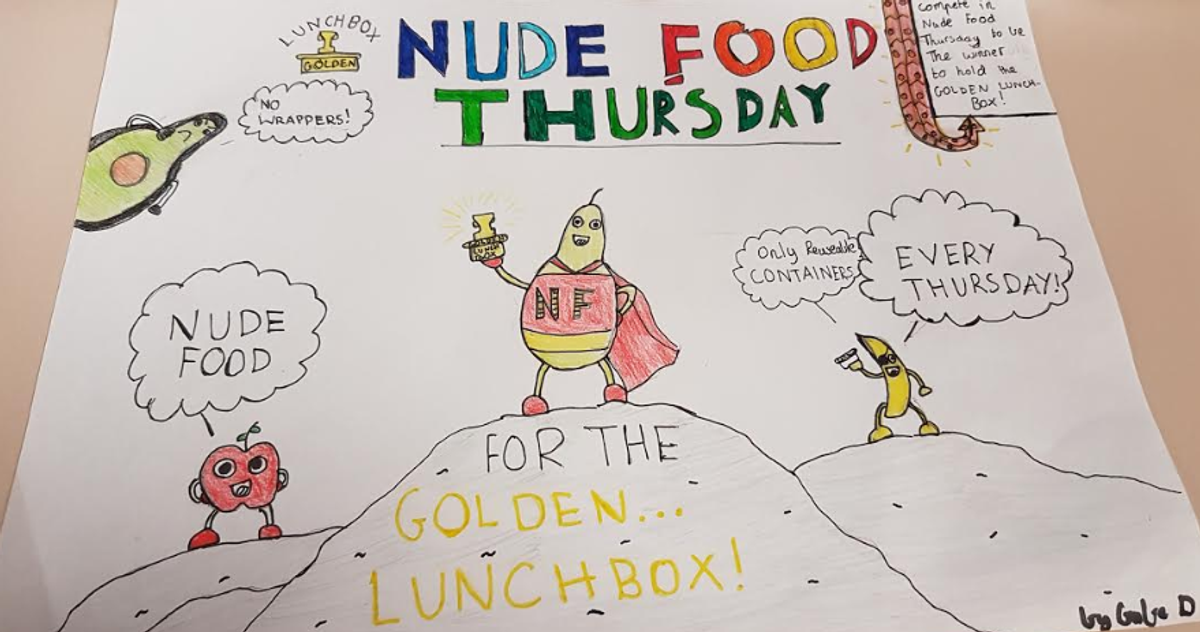 LUNCHBOX
GOLDEN
NUDE FOOD
THURSDAY
compete in
Nude Food
Thursday to be
The winner
to hold the
GOLDEN LUNCH-
BOX!
NO
WRAPPERS!
GOLDEN
LUNCH
BOX
NF
Only Reuseable
CONTAINERS
EVERY
THURSDAY!
NUDE
FOOD
FOR THE
GOLDEN...
LUNCHBOX!
by Gabe D